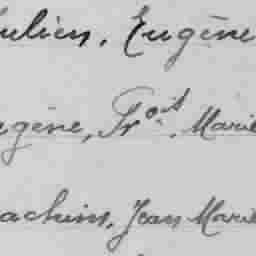 ulien, Eugène
gène, Frois, Marie
achim, Jean Marie